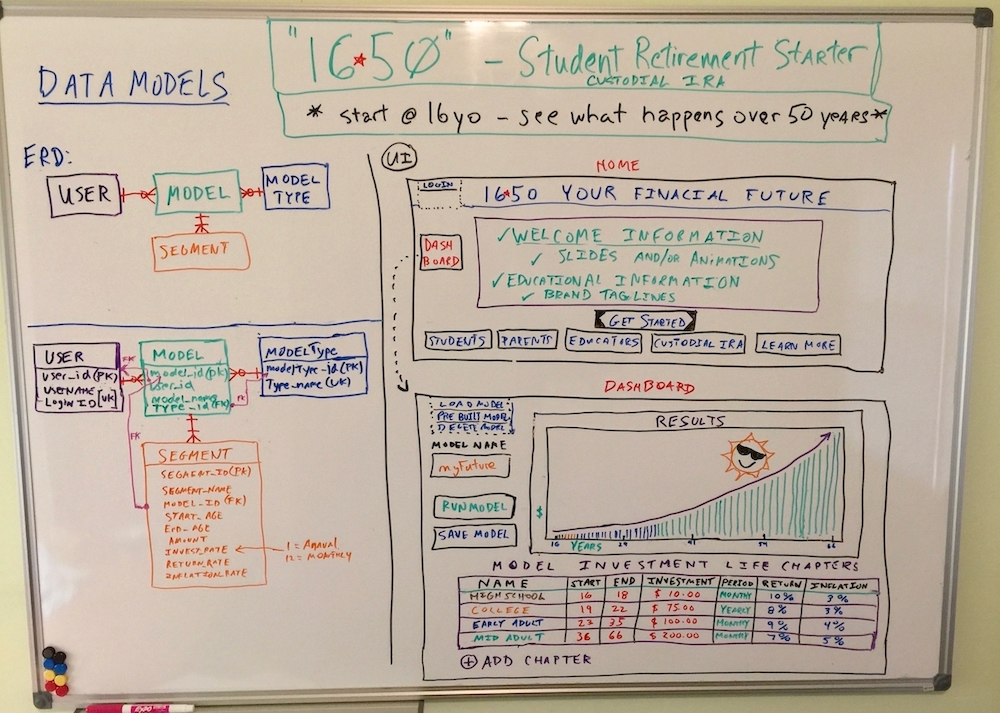 "16★50" - Student Retirement Starter
CUSTODIAL IRA
* start @ 16yo - see what happens over 50 years*
DATA MODELS
ERD:
USER
MODEL
MODEL TYPE
SEGMENT
USER
user_id (PK)
USERNAME
LoginID [UK]
MODEL
model_id (PK)
user_id
model_name
TYPE_id (FK)
MODELType
modelType_id (PK)
Type_name (UK)
FK
FK
FK
SEGMENT
SEGMENT_ID (PK)
SEGMENT_NAME
MODEL_ID (FK)
START_AGE
END_AGE
AMOUNT
INVEST_RATE
RETURN_RATE
INFLATION_RATE
1 = Annual
12 = MONTHLY
UI
HOME
LOGIN
16★50 YOUR FINACIAL FUTURE
DASH
BOARD
✓ WELCOME INFORMATION
✓ SLIDES AND/OR ANIMATIONS
✓ EDUCATIONAL INFORMATION
✓ BRAND TAGLINES
GET STARTED
STUDENTS PARENTS EDUCATORS CUSTODIAL IRA LEARN MORE
DASHBOARD
LOAD MODEL
PRE BUILT MODEL
DELETE MODEL
MODEL NAME
myFuture
RUN MODEL
SAVE MODEL
RESULTS
$
16 29 41 54 66
YEARS
MODEL INVESTMENT LIFE CHAPTERS
NAME START END INVESTMENT PERIOD RETURN INFLATION
HIGH SCHOOL 16 18 $ 10.00 MONTHLY 10% 3%
COLLEGE 19 22 $ 75.00 YEARLY 8% 3%
EARLY ADULT 23 35 $ 100.00 MONTHLY 9% 4%
MID ADULT 36 66 $ 200.00 MONTHLY 7% 5%
+ ADD CHAPTER
EXPO